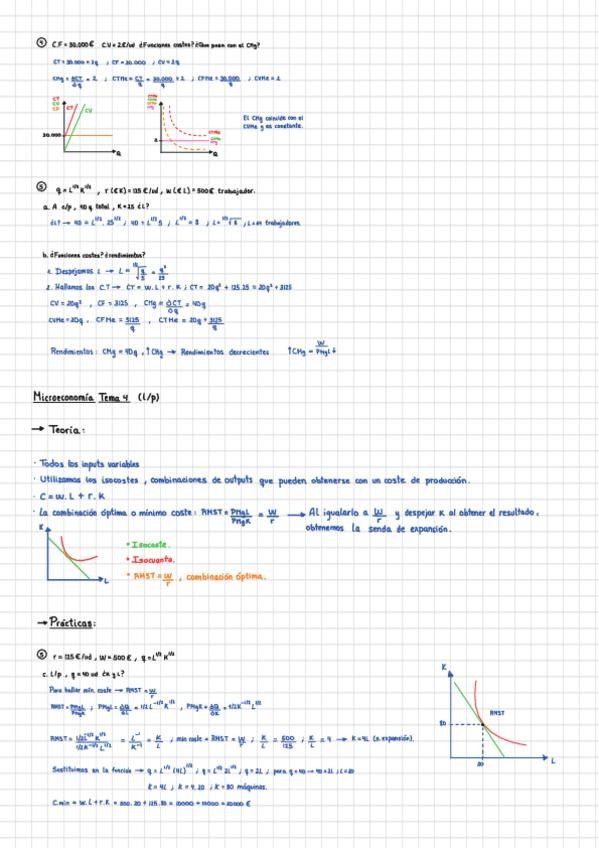 ④ C.F = 30.000€ C.V = 2€/ud ¿Funciones costes? ¿Que pasa con el CMg?
CT = 30.000 + 2q ; CF = 30.000 ; CV = 2q
CMg = ∂CT/∂q = 2 ; CTMe = CT/q = 30.000/q + 2 ; CFMe = 30.000/q ; CVMe = 2
CT
CV
CF
CT
CV
30.000
Q
CTMe
2
Q
El CMg coincide con el
CVMe y es constante.
⑤ q = L^1/2 K^1/2 , r (€K) = 125 €/ud , w (€L) = 500€ trabajador.
a. A c/p, 40q total, K = 25 ¿L?
¿L? → 40 = L^1/2 . 25^1/2 ; 40 = L^1/2 5 ; L^1/2 = 8 ; L = ^1/2√8 ; L = 64 trabajadores.
b. ¿Funciones costes? ¿rendimientos?
1. Despejamos L → L = ^1/2√q/5 = q²/25
2. Hallamos los C.T → CT = W.L + r.K ; CT = 20q² + 125.25 = 20q² + 3125
CV = 20q² , CF = 3125 , CMg = ∂CT/∂q = 40q
CVMe = 20q , CFMe = 3125/q , CTMe = 20q + 3125/q
Rendimientos: CMg = 40q , ↑CMg → Rendimientos decrecientes ↑CMg = W/PMgL↓
Microeconomía Tema 4 (l/p)
→ Teoría:
· Todos los inputs variables
· Utilizamos los isocostes , combinaciones de outputs que pueden obtenerse con un coste de producción.
· C = W.L + r.K
· La combinación óptima o mínimo coste: RMST = PMgL/PMgK = W/r → Al igualarlo a W/r y despejar K al obtener el resultado,
obtenemos la senda de expansión.
K
L
• Isocoste.
• Isocuanta.
• RMST = W/r , combinación óptima.
→ Prácticas:
⑤ r = 125 €/ud , W = 500 € , q = L^1/2 K^1/2
c. L/p , q = 40 ud ¿K y L?
Para hallar mín. coste → RMST = W/r
RMST = PMgL/PMgK ; PMgL = ∂Q/∂L = 1/2 L^-1/2 K^1/2 , PMgK = ∂Q/∂K = 1/2 K^-1/2 L^1/2
RMST = 1/2L^-1/2 K^1/2 / 1/2K^-1/2 L^1/2 = L^-1/K^-1 = K/L ; mín coste = RMST = W/r ; K/L = 500/125 ; K/L = 4 → K = 4L (s. expansión).
Sustituimos en la función → q = L^1/2 (4L)^1/2 ; q = L^1/2 2L^1/2 ; q = 2L ; para q = 40 → 40 = 2L ; L = 20
K = 4L ; K = 4.20 ; K = 80 máquinas.
C.min = W.L + r.K = 500.20 + 125.80 = 10000 + 10000 = 20000 €
K
RMST
80
20
L